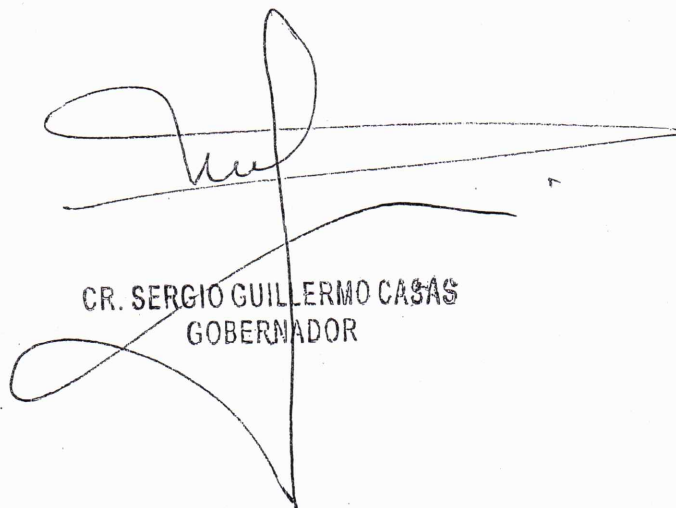 CR. SERGIO GUILLERMO CASAS
GOBERNADOR